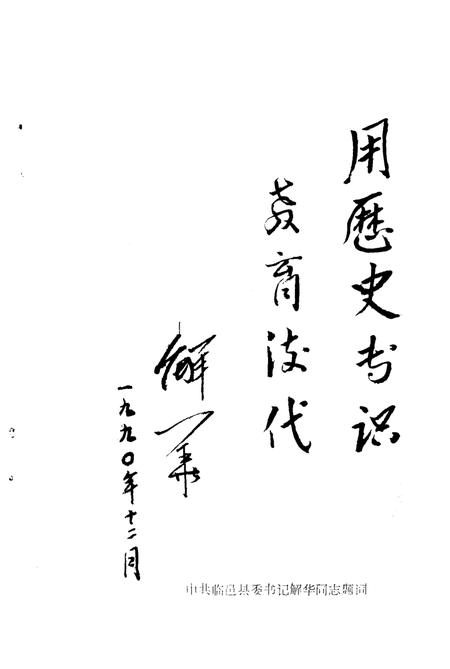 用歷史知识
教育後代
解华
一九九〇年十二月
中共临邑县委书记解华同志题词